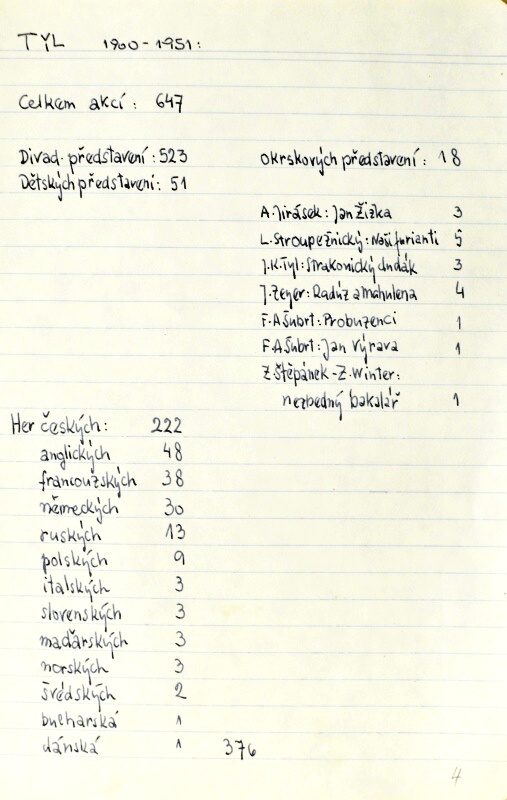 TYL 1900-1951:
Celkem akcí: 647
Divad. představení: 523
Dětských představení: 51
Okrskových představení: 18
A. Jirásek: Jan Žižka 3
L. Stroupežnický: Naši furianti 5
J.K. Tyl: Strakonický dudák 3
J. Zeyer: Radúz a Mahulena 4
F.A Šubrt: Probuzenci 1
F.A Šubrt: Jan Výrava 1
Z. Štěpánek - Z. Winter:
nezbedný bakalář 1
Her českých: 222
anglických 48
francouzských 38
německých 30
ruských 13
polských 9
italských 3
slovenských 3
maďarských 3
norských 3
švédských 2
bulharská 1
dánská 1 376
4